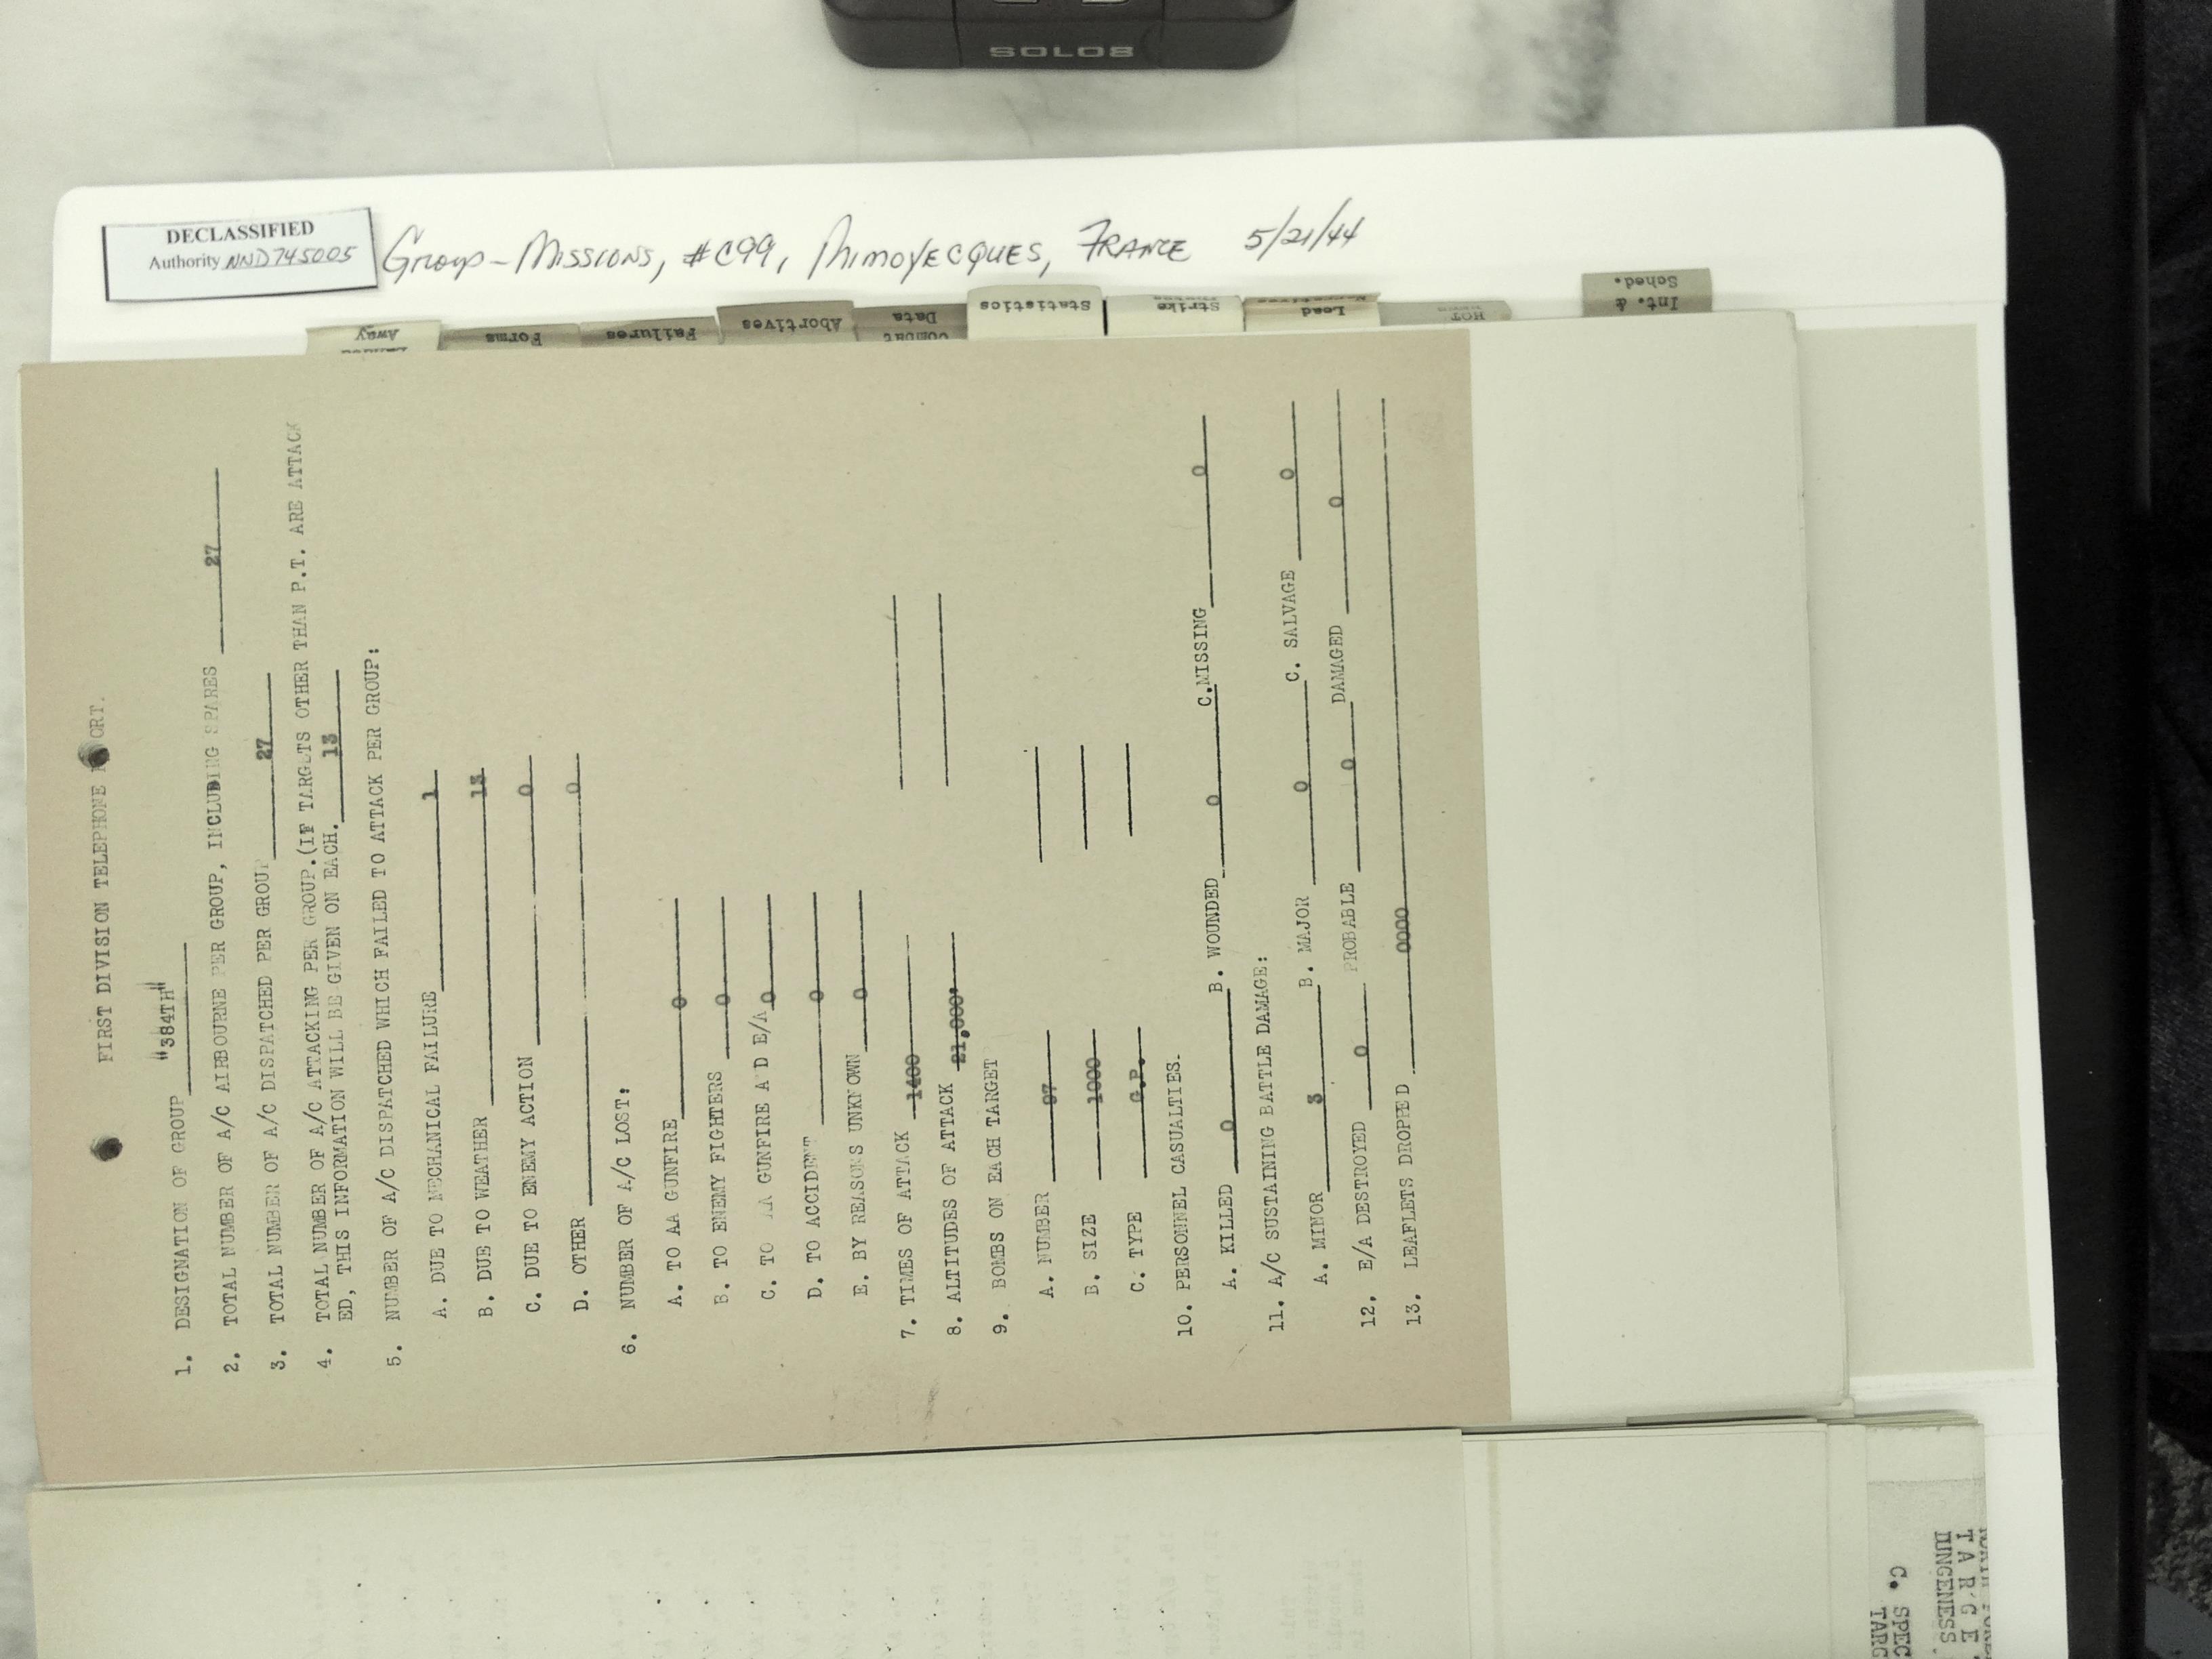 SOLO8
DECLASSIFIED
Authority NND745005
Group-Missions, #C99, Mimoyecques, France 5/21/44
Away
Forms
Failures
Abortives
Combat
Data
Statistics
Strike
Lead
HOT
Int. &
Sched.
FIRST DIVISION TELEPHONE
1. DESIGNATION OF GROUP "384TH"
2. TOTAL NUMBER OF A/C AIRBOURNE PER GROUP, INCLUDING SPARES 27
3. TOTAL NUMBER OF A/C DISPATCHED PER GROUP 27
4. TOTAL NUMBER OF A/C ATTACKING PER GROUP.(IF TARGETS OTHER THAN P.T. ARE ATTACK
ED, THIS INFORMATION WILL BE GIVEN ON EACH. 13
5. NUMBER OF A/C DISPATCHED WHICH FAILED TO ATTACK PER GROUP:
A. DUE TO MECHANICAL FAILURE 1
B. DUE TO WEATHER 13
C. DUE TO ENEMY ACTION 0
D. OTHER 0
6. NUMBER OF A/C LOST:
A. TO AA GUNFIRE 0
B. TO ENEMY FIGHTERS 0
C. TO AA GUNFIRE A D E/A 0
D. TO ACCIDENT 0
E. BY REASONS UNKNOWN 0
7. TIMES OF ATTACK 1400
8. ALTITUDES OF ATTACK 21,000'
9. BOMBS ON EACH TARGET
A. NUMBER
B. SIZE 1000
C. TYPE G.P.
10. PERSONNEL CASUALTIES.
A. KILLED 0 B. WOUNDED 0 C.MISSING 0
11. A/C SUSTAINING BATTLE DAMAGE:
A. MINOR 3 B. MAJOR 0 C. SALVAGE 0
12. E/A DESTROYED 0 PROBABLE 0 DAMAGED 0
13. LEAFLETS DROPPED 0000
TARGE
DUNGENESS
C. SPEC
TARG